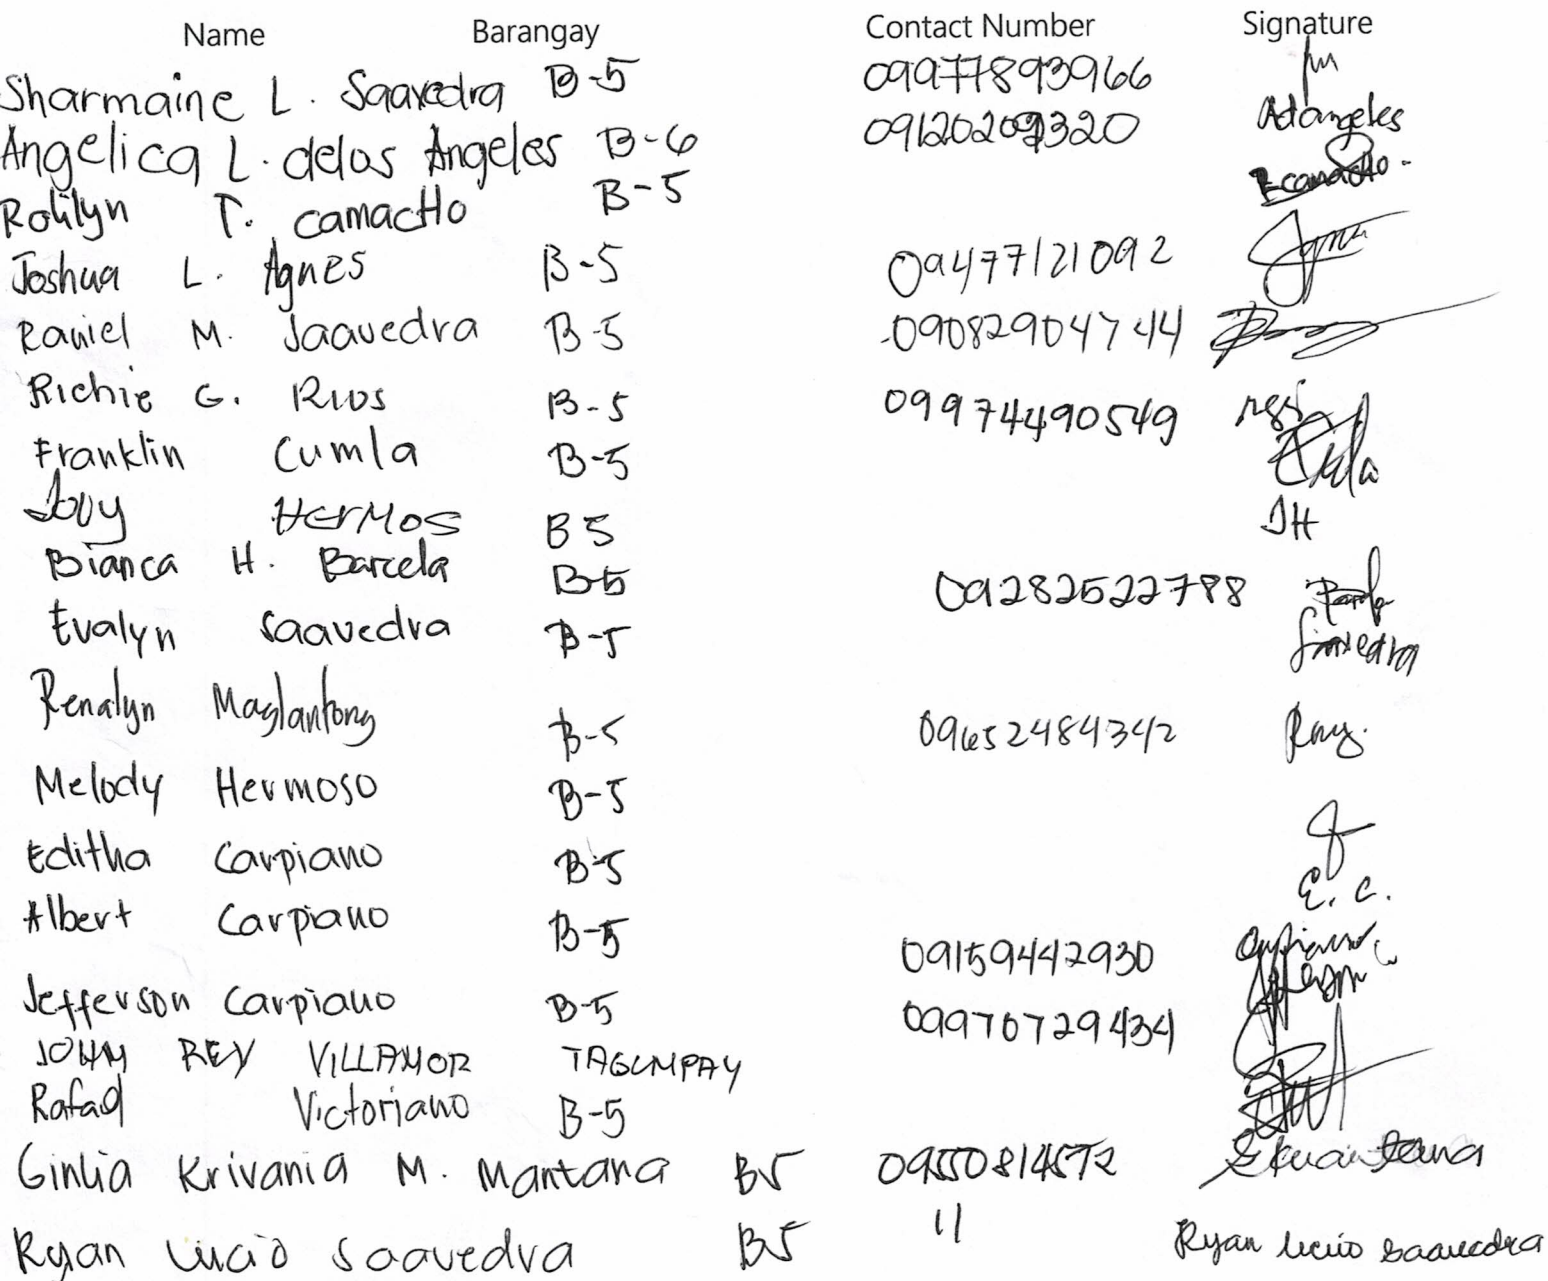 Name Barangay Contact Number Signature
Sharmaine L. Saavedra B-5 09977893966
Angelica L. delos Angeles B-6 09120209320 Adangeles
Rotilyn T. camacHo B-5 Ecamacho.
Joshua L. Agnes B-5 09477121092
Raniel M. Saavedra B-5 09082904744
Richie G. Rios B-5 09974490549
Franklin Cumla B-5
Jovy HerMos B5 JH
Bianca H. Barcela B-5 09282522788
Evalyn Saavedra B-5 Saavedra
Renalyn Maglantong B-5 09652484342
Melody Hermoso B-5
Editha Carpiano B-5 E. C.
Albert Carpiano B-5 09159442930
Jefferson Carpiano B-5 09970729434
JOHN REY VILLAMOR TAGUMPAY
Rafael Victoriano B-5
Ginlia Krivania M. Mantana B5 09550814572
Ryan Lucio Saavedra B5 11 Ryan lucio saavedra